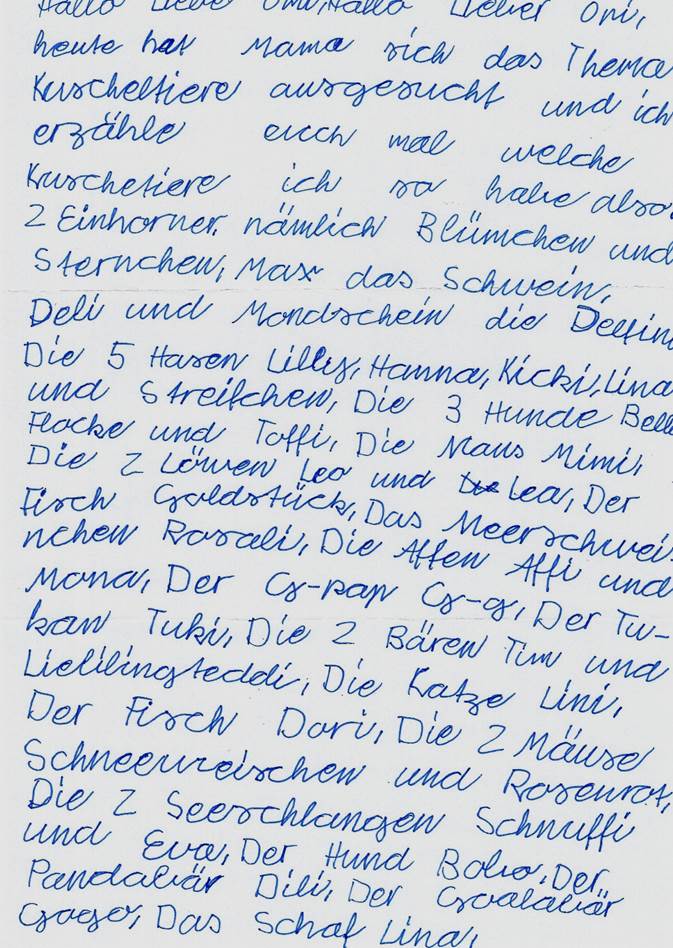 Hallo Liebe Omi, Hallo Lieber Opi,
heute hat Mama sich das Thema
Kuscheltiere ausgesucht und ich
erzähle euch mal welche
Kuschetiere ich so habe also:
2 Einhorner, nämlich Blümchen und
Sternchen, Max das Schwein,
Deli und Mondschein die Delfine
Die 5 Hasen Lilly, Hanna, Kicki, Lina
und Streifchen, Die 3 Hunde Bella
Flocke und Toffi, Die Maus Mimi,
Die 2 Löwen Leo und Lea, Der
Fisch Goldstück, Das Meerschwei-
nchen Rosali, Die Affen Affi und
Mona, Der
Der Tu-
kan Tuki, Die 2 Bären Tim und
Lieblingsteddi, Die Katze Lini,
Der Fisch Dori, Die 2 Mäuse
Schneeweischen und Rosenrot,
Die 2 Seeschlangen Schnuffi
und Eva, Der Hund Bobo, Der
Pandabär Dili, Der Goalabär
Gogo, Das Schaf Lina,